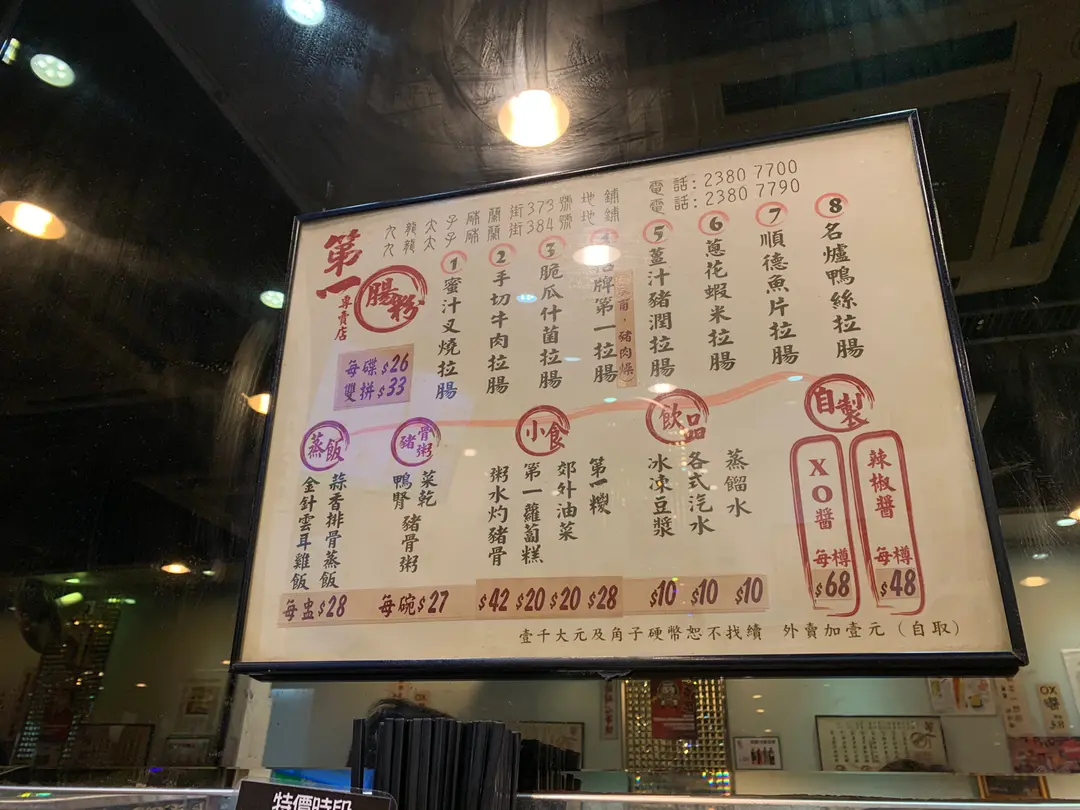 九龍太子砵蘭街373號地鋪
九龍太子砵蘭街384號地鋪
電話: 2380 7700
電話: 2380 7790
第一
腸粉
專賣店
每碟$26
雙拼$33
1 蜜汁叉燒拉腸
2 手切牛肉拉腸
3 脆瓜什菌拉腸
招牌第一拉腸
豬肉燥
5 薑汁豬潤拉腸
6 蔥花蝦米拉腸
7 順德魚片拉腸
8 名爐鴨絲拉腸
蒸飯
蒜香排骨蒸飯
金針雲耳雞飯
每盅$28
豬骨粥
菜乾豬骨粥
鴨腎
每碗$27
小食
粥水灼豬骨
$42
第一蘿蔔糕
$20
郊外油菜
$20
第一糉
$28
飲品
冰凍豆漿
$10
各式汽水
$10
蒸餾水
$10
自製
XO醬
每樽
$68
辣椒醬
每樽
$48
壹千大元及角子硬幣恕不找續 外賣加壹元(自取)
特價時段